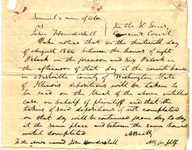 Samuel a man of color
vs
John Hundershell
In the St Louis
Circuit Court
Take notice that on the thirteenth day
of August 1844 between the hours of eight
o'clock in the forenoon and six o'clock in
the afternoon of that day at the court house
in Nashville county of Washington State
of Illinois depositions will be taken to
be read on the trial of the above entitled
case on behalf of plaintiff, and that the
taking of said depositions if not completed
on that day will be continued from day to day
at the same place and between the same hours
until completed
To the above named John Hundershell
Atty for plff